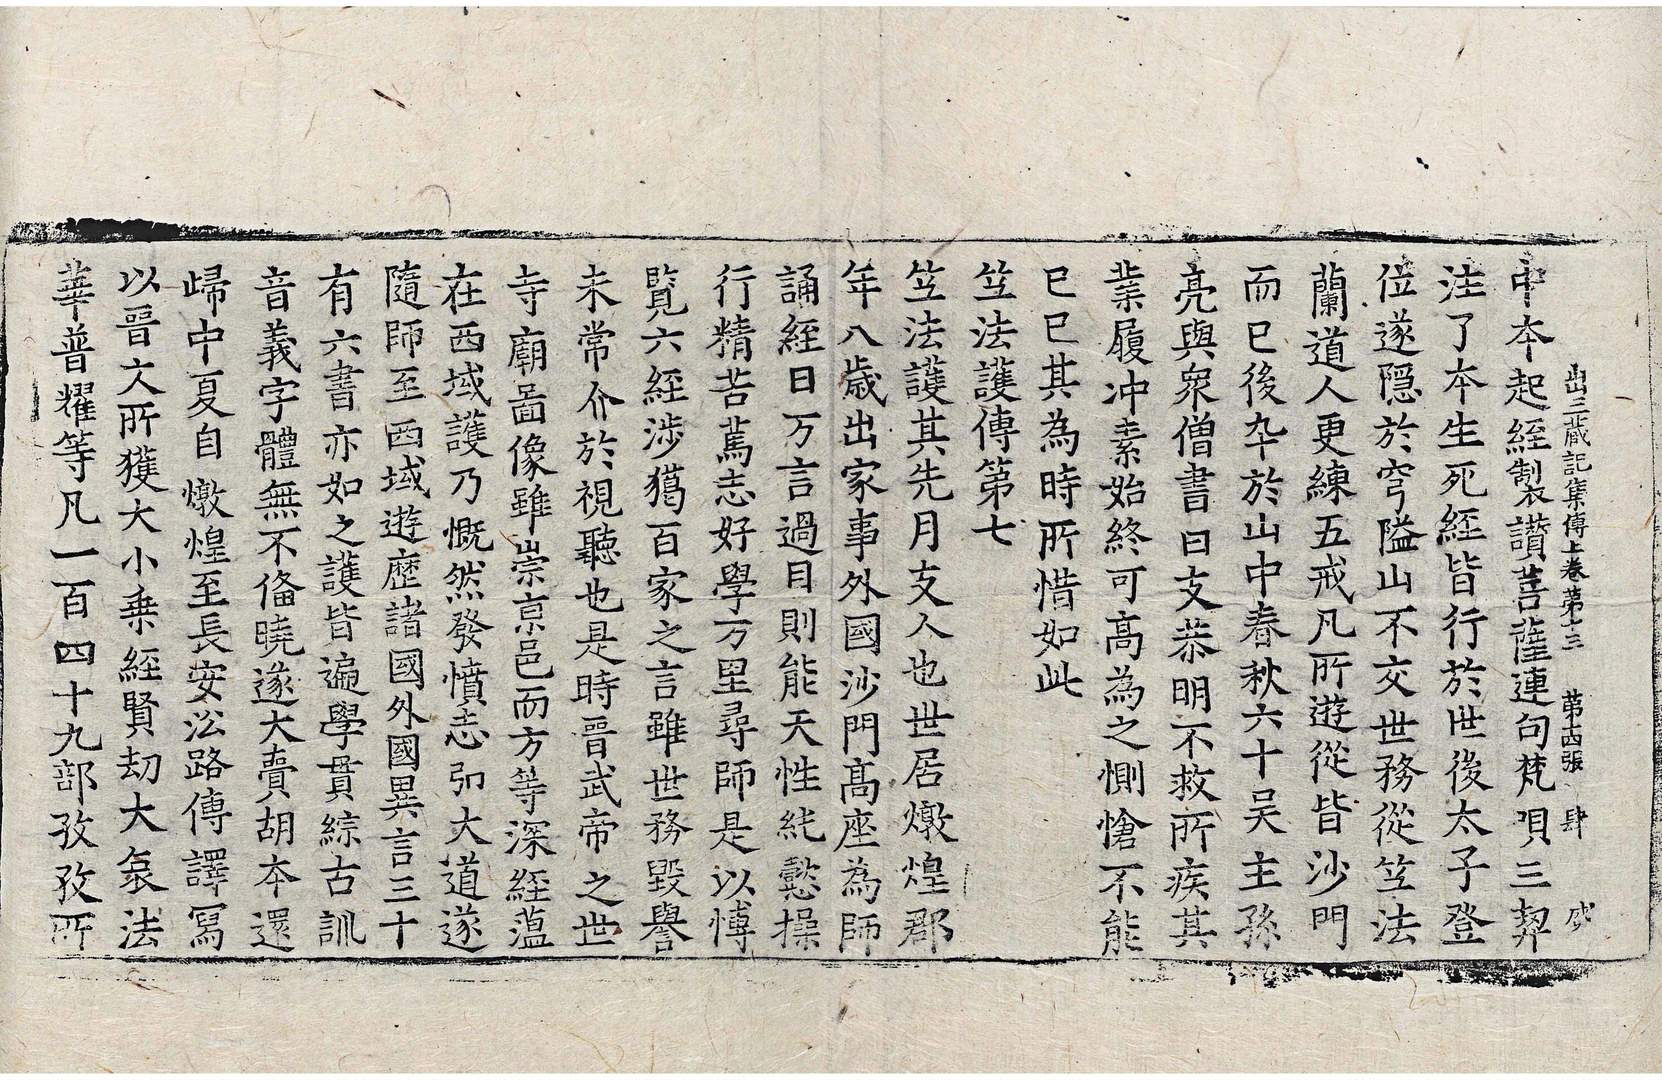 出三藏記集傳上卷第十三 第十四張 肆
中本起經製讃菩薩連句梵唄三契
注了本生死經皆行於世後太子登
位遂隱於穹隘山不交世務從竺法
蘭道人更練五戒凡所遊從皆沙門
而已後卒於山中春秋六十吴主孫
亮與衆僧書曰支恭明不救所疾其
業履冲素始終可高為之惻愴不能
已已其為時所惜如此
竺法護傳第七
竺法護其先月支人也世居燉煌郡
年八歲出家事外國沙門高座為師
誦經日万言過目則能天性純懿操
行精苦萬志好學万里尋師是以博
覽六經涉獦百家之言雖世務毀譽
未常介於視聽也是時晉武帝之世
寺廟啚像雖崇京邑而方等深經薀
在西域護乃慨然發憤志弘大道遂
隨師至西域遊歷諸國外國異言三十
有六書亦如之護皆遍學貫綜古訓
音義字體無不俻曉遂大賷胡本還
歸中夏自燉煌至長安㳂路傳譯寫
以晉文所獲大小乗經賢劫大哀法
華普耀等凡一百四十九部孜孜所